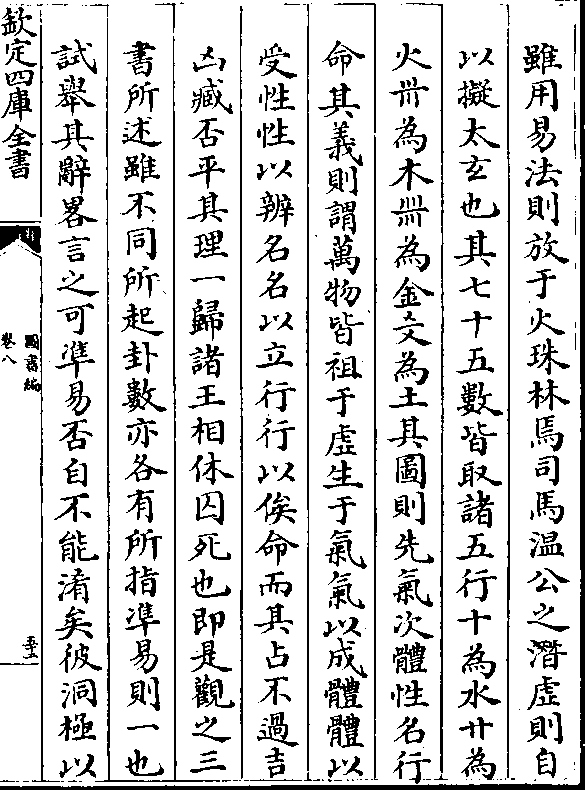 雖用易法則放于火珠林馬司馬温公之潛虛則自
以擬太玄也其七十五數皆取諸五行十為水卄為
火卅為木卌為金㐅為土其圖則先氣次體性名行
命其義則謂萬物皆祖于虛生于氣氣以成體體以
受性性以辨名名以立行行以俟命而其占不過吉
凶臧否平其理一歸諸王相休囚死也即是觀之三
書所述雖不同所起卦數亦各有所指凖易則一也
試舉其辭畧言之可凖易否自不能淆矣彼洞極以
欽定四庫全書
圖書編
卷八